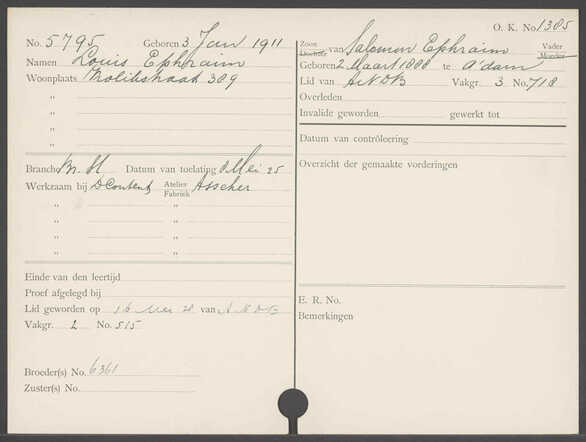 No. 5795 Geboren 3 Jan 1911
Namen Louis Ephraim
Woonplaats Trolikstraat 309
"
"
"
"
Branche M. H. Datum van toelating Mei 25
Werkzaam bij D Content, Atelier Fabriek Asscher
" "
" "
" "
" "
Einde van den leertijd
Proef afgelegd bij
Lid geworden op 16 Mei 28 van A N D B
Vakgr. 2 No. 515
Broeder(s) No. 6361
Zuster(s) No.
O. K. No 1305
Zoon Dochter van Salomon Ephraim Vader Moeder
Geboren 2 Maart 1888 te A'dam
Lid van A N D B Vakgr. 3 No. 718
Overleden
Invalide geworden gewerkt tot
Datum van contrôleering
Overzicht der gemaakte vorderingen
E. R. No.
Bemerkingen